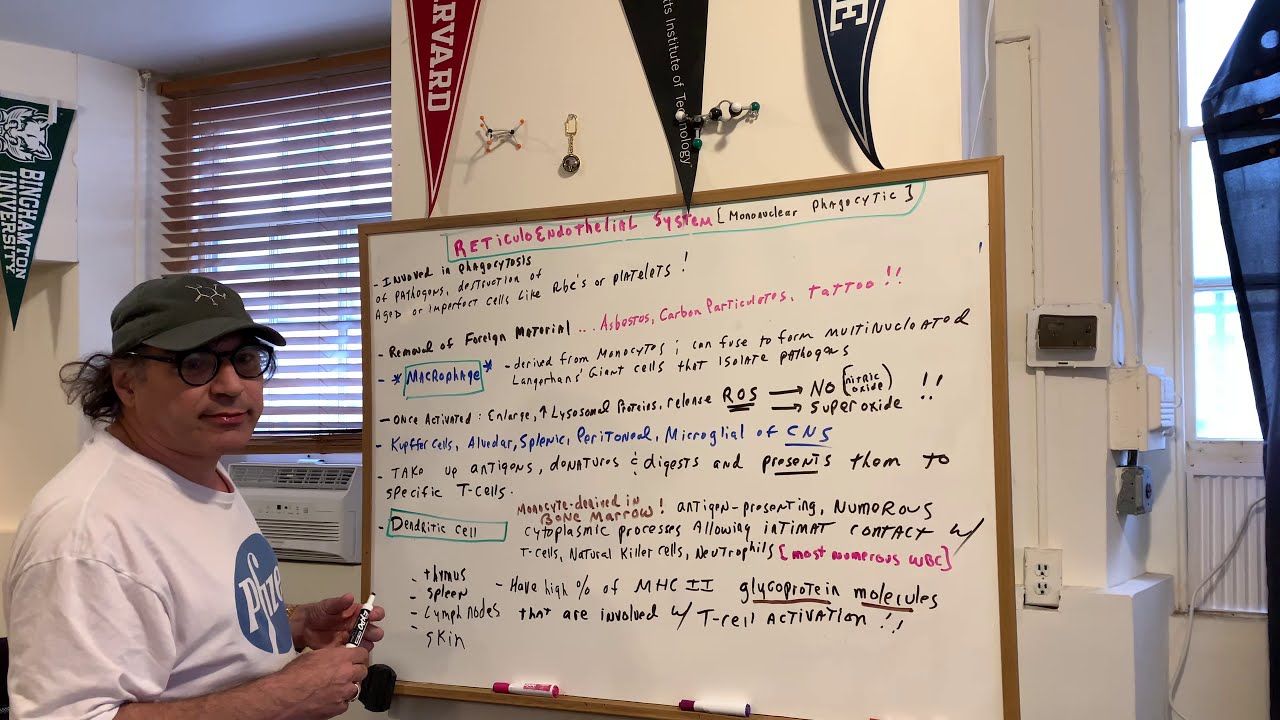 HARVARD
tts Institute of Technology
LE
BINGHAMTON
UNIVERSITY
RETiculoEndothelial System [Mononuclear Phagocytic]
- Involved in Phagocytosis
of Pathogens, destruction of
Aged or imperfect cells like Rbc's or Platelets!
- Removal of Foreign Material ... Asbestos, Carbon Particulates, tattoo!!
- * Macrophage * - derived from Monocytes; can fuse to form multiNucleated
Langerhans' Giant cells that Isolate pathogens
- Once Activated: Enlarge, ↑ Lysosomal Proteins, release ROS → NO (nitric oxide) !!
→ superoxide
- Kupffer cells, Alveolar, Splenic, Peritoneal, Microglial of CNS
- Take up antigens, denatures & digests and presents them to
specific T-cells.
- Dendritic cell
Monocyte-derived in
Bone Marrow! antigen-presenting, Numerous
cytoplasmic processes Allowing intimat contact w/
T-cells, Natural Killer cells, Neutrophils [most numerous WBC]
- thymus
- spleen
- Lymph nodes
- skin
- Have high % of MHC II glycoprotein molecules
that are involved w/ T-cell Activation!!!
Pfize
EXPO